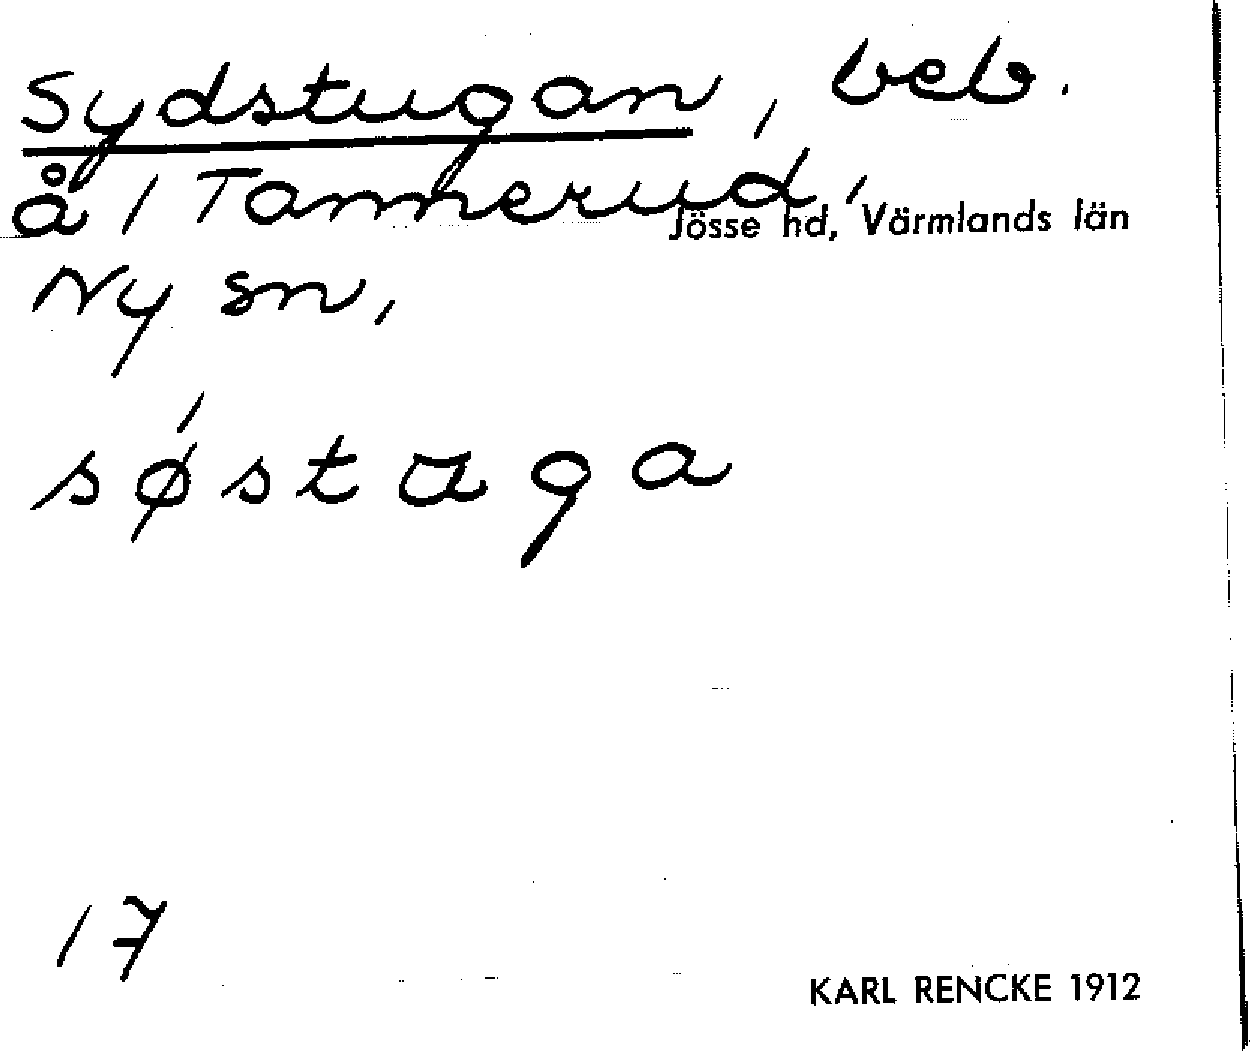 Sydstugan, beb.
å 1 Tannerud,
Jösse hd, Värmlands län
Ny sn,
søstuga
17
KARL RENCKE 1912